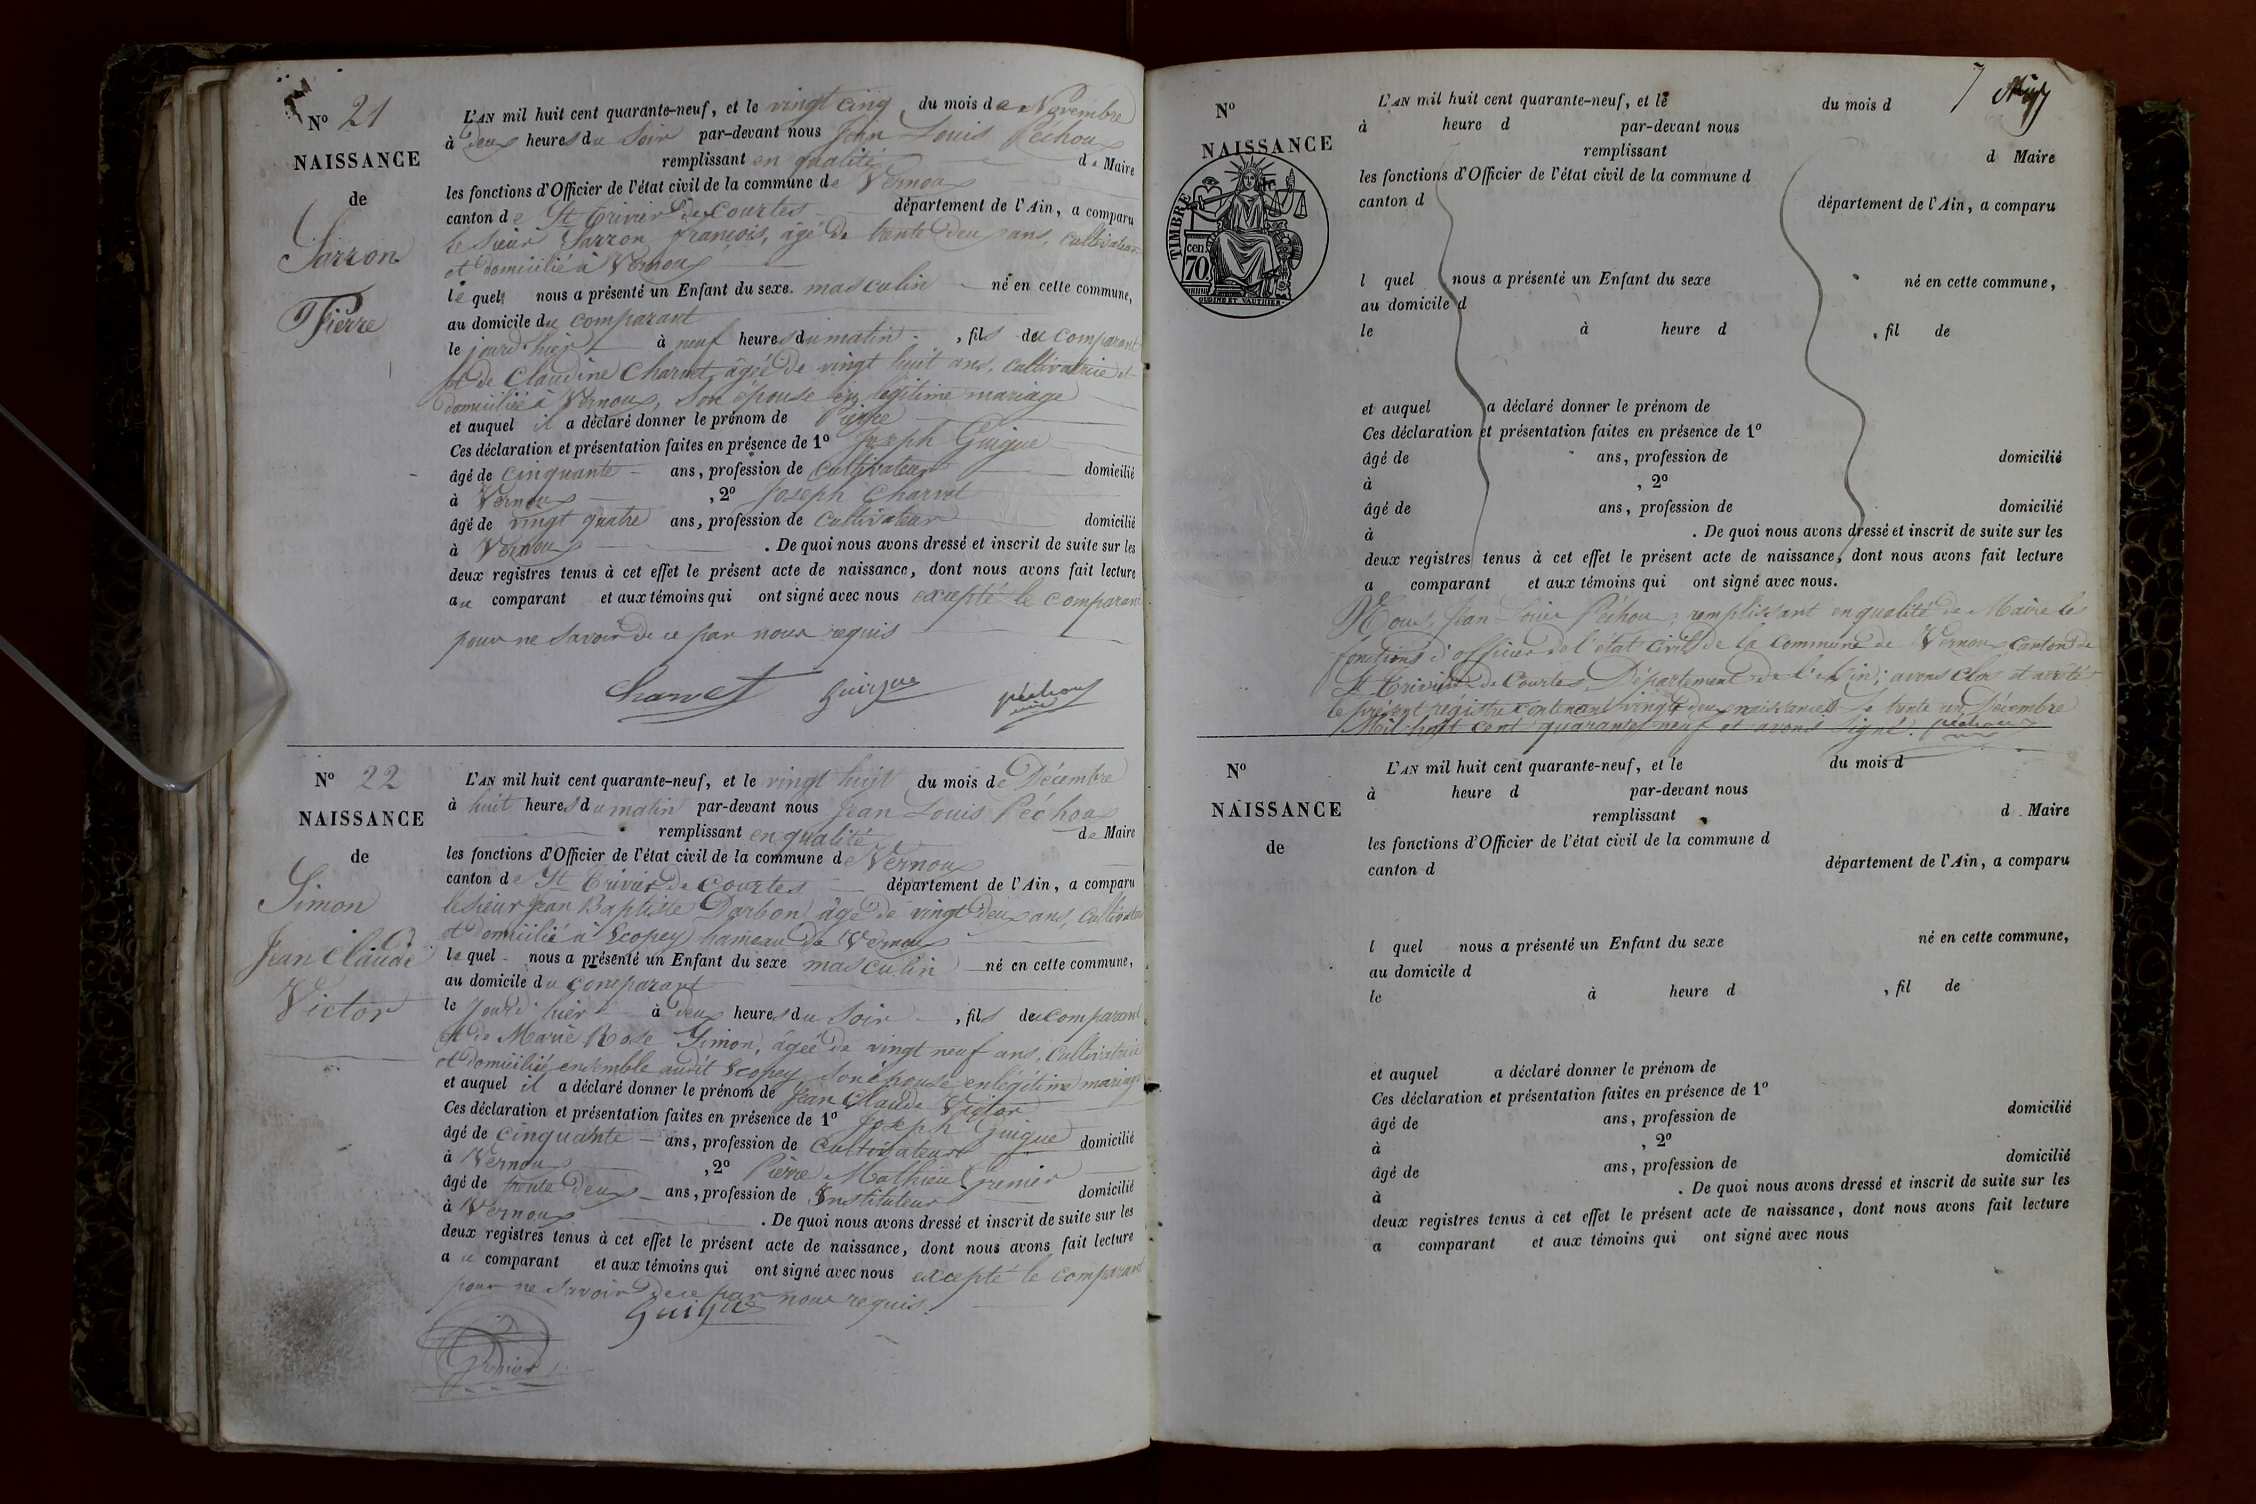 N° 21
NAISSANCE
de
Sarron
Pierre
L'AN mil huit cent quarante-neuf, et le vingt cinq du mois de Novembre
à deux heures du soir par-devant nous Jean Louis Péchoux
remplissant en qualité de Maire
les fonctions d'Officier de l'état civil de la commune de Vernoux
canton de St Trivier de Courtes département de l'Ain, a comparu
le sieur Sarron françois, âgé de trente deux ans, cultivateur
et domicilié à Vernoux
lequel nous a présenté un Enfant du sexe masculin né en cette commune,
au domicile du comparant
le jourd'hier à neuf heures du matin, fils du comparant
et de Claudine Charvet, âgée de vingt huit ans, cultivatrice et
domiciliée à Vernoux, son épouse en légitime mariage
et auquel il a déclaré donner le prénom de Pierre
Ces déclaration et présentation faites en présence de 1° Joseph Guigue
âgé de cinquante ans, profession de cultivateur domicilié
à Vernoux, 2° Joseph Charvet
âgé de vingt quatre ans, profession de cultivateur domicilié
à Vernoux. De quoi nous avons dressé et inscrit de suite sur les
deux registres tenus à cet effet le présent acte de naissance, dont nous avons fait lecture
au comparant et aux témoins qui ont signé avec nous excepté le comparant
pour ne savoir de ce par nous requis
Charvet Guigue péchoux
N° 22
NAISSANCE
de
Simon
Jean Claude
Victor
L'AN mil huit cent quarante-neuf, et le vingt huit du mois de Décembre
à huit heures du matin par-devant nous Jean Louis Péchoux
remplissant en qualité de Maire
les fonctions d'Officier de l'état civil de la commune de Vernoux
canton de St Trivier de Courtes département de l'Ain, a comparu
le sieur Jean Baptiste Darbon âgé de vingt deux ans, cultivateur
et domicilié à Scopey hameau de Vernoux
lequel nous a présenté un Enfant du sexe masculin né en cette commune,
au domicile du comparant
le jourd'hier à deux heures du soir, fils du comparant
et de Marie Rose Simon, âgée de vingt neuf ans, cultivatrice
et domiciliée ensemble audit Scopey, son épouse en légitime mariage
et auquel il a déclaré donner le prénom de Jean Claude Victor
Ces déclaration et présentation faites en présence de 1° Joseph Guigue
âgé de cinquante ans, profession de cultivateur domicilié
à Vernoux, 2° Pierre Mathieu Grenier
âgé de trente deux ans, profession de Instituteur domicilié
à Vernoux. De quoi nous avons dressé et inscrit de suite sur les
deux registres tenus à cet effet le présent acte de naissance, dont nous avons fait lecture
au comparant et aux témoins qui ont signé avec nous excepté le comparant
pour ne savoir de ce par nous requis.
Guigue
Grenier
7
N°
NAISSANCE
TIMBRE
cen
70
OUDINÉ ET VAUTHIER
L'AN mil huit cent quarante-neuf, et le du mois d
à heure d par-devant nous
remplissant d Maire
les fonctions d'Officier de l'état civil de la commune d
canton d département de l'Ain, a comparu
l quel nous a présenté un Enfant du sexe né en cette commune,
au domicile d
le à heure d , fil de
et auquel a déclaré donner le prénom de
Ces déclaration et présentation faites en présence de 1°
âgé de ans, profession de domicilié
à , 2°
âgé de ans, profession de domicilié
à . De quoi nous avons dressé et inscrit de suite sur les
deux registres tenus à cet effet le présent acte de naissance, dont nous avons fait lecture
a comparant et aux témoins qui ont signé avec nous.
Nous, Jean Louis Péchoux, remplissant en qualité de Maire les
fonctions d'officier de l'état civil de la commune de Vernoux canton de
St Trivier de Courtes, Département de l'Ain; avons clos et arrêté
le présent régistre contenant vingt deux naissances le trente un Décembre
Mil huit cent quarante neuf et avons signé. péchoux
N°
NAISSANCE
de
L'AN mil huit cent quarante-neuf, et le du mois d
à heure d par-devant nous
remplissant d Maire
les fonctions d'Officier de l'état civil de la commune d
canton d département de l'Ain, a comparu
l quel nous a présenté un Enfant du sexe né en cette commune,
au domicile d
le à heure d , fil de
et auquel a déclaré donner le prénom de
Ces déclaration et présentation faites en présence de 1°
âgé de ans, profession de domicilié
à , 2°
âgé de ans, profession de domicilié
à . De quoi nous avons dressé et inscrit de suite sur les
deux registres tenus à cet effet le présent acte de naissance, dont nous avons fait lecture
a comparant et aux témoins qui ont signé avec nous